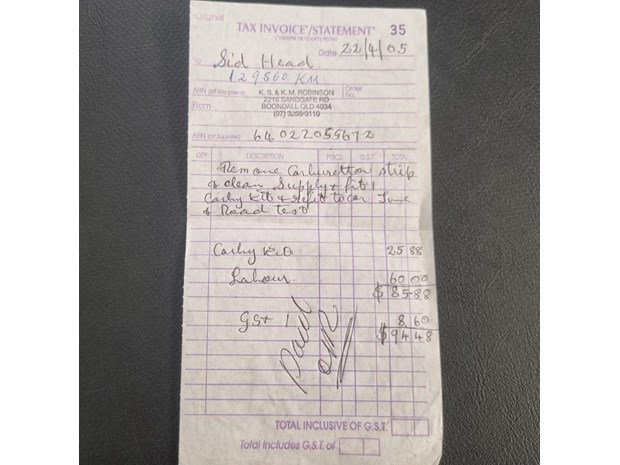 Original
TAX INVOICE/STATEMENT 35
Date 22/4/05
To Sid Head
129560 KM
ABN (of Recipient) K. S. & K.M. ROBINSON Order No.
2216 SANDGATE RD
From BOONDALL QLD 4034
(07) 3265-3110
ABN (of Supplier) 64022055672
QTY DESCRIPTION PRICE G.S.T. TOTAL
Remove Carburettor strip
& clean Supply & fit 1
Carby kit & refit to car Tune
& Road test
Carby kit 25 88
Labour 60 00
$ 85.88
GST 8,60
$94 48
Paid
TOTAL INCLUSIVE OF G.S.T.
Total includes G.S.T. of